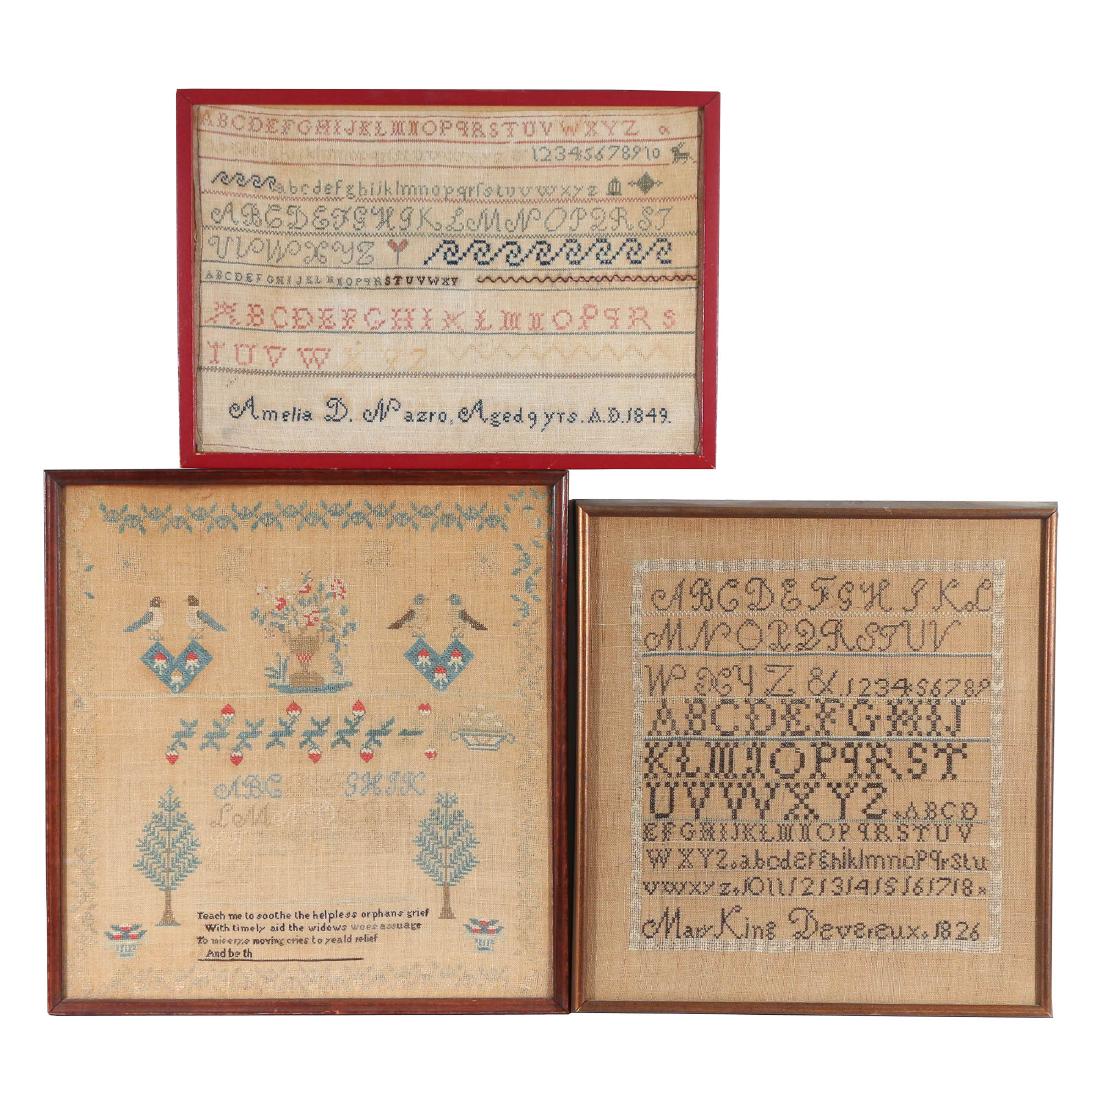 ABCDEFGHIJKLMNOPqRSTUVWXYZ a
12345678910
abcdefghijklmnopqrſstuvwxyz
ABCDEFGHIKLMNOPQRST
UVWXYZ
ABCDEFGHIJKLMNOPqRSTUVWXY
ABCDEFGHIKLMNOPqRS
TUVWXYZ
Amelia D. Nazro, Aged 9 yrs. A.D. 1849.
ABC GHIK
LM
Teach me to soothe the helpless orphans grief
With timely aid the widows woes assuage
To miserys moving cries to yeald relief
And be th
ABCDEFGHIKL
MNOPQRSTUV
WXYZ & 123456789
ABCDEFGHIJ
KLMNOPqRST
UVWXYZ ABCD
EFGHIJKLMNOPqRSTUV
WXYZ abcdefghiklmnopqrstu
vwxyz 10 11 12 13 14 15 16 17 18
Mary King Devereux 1826